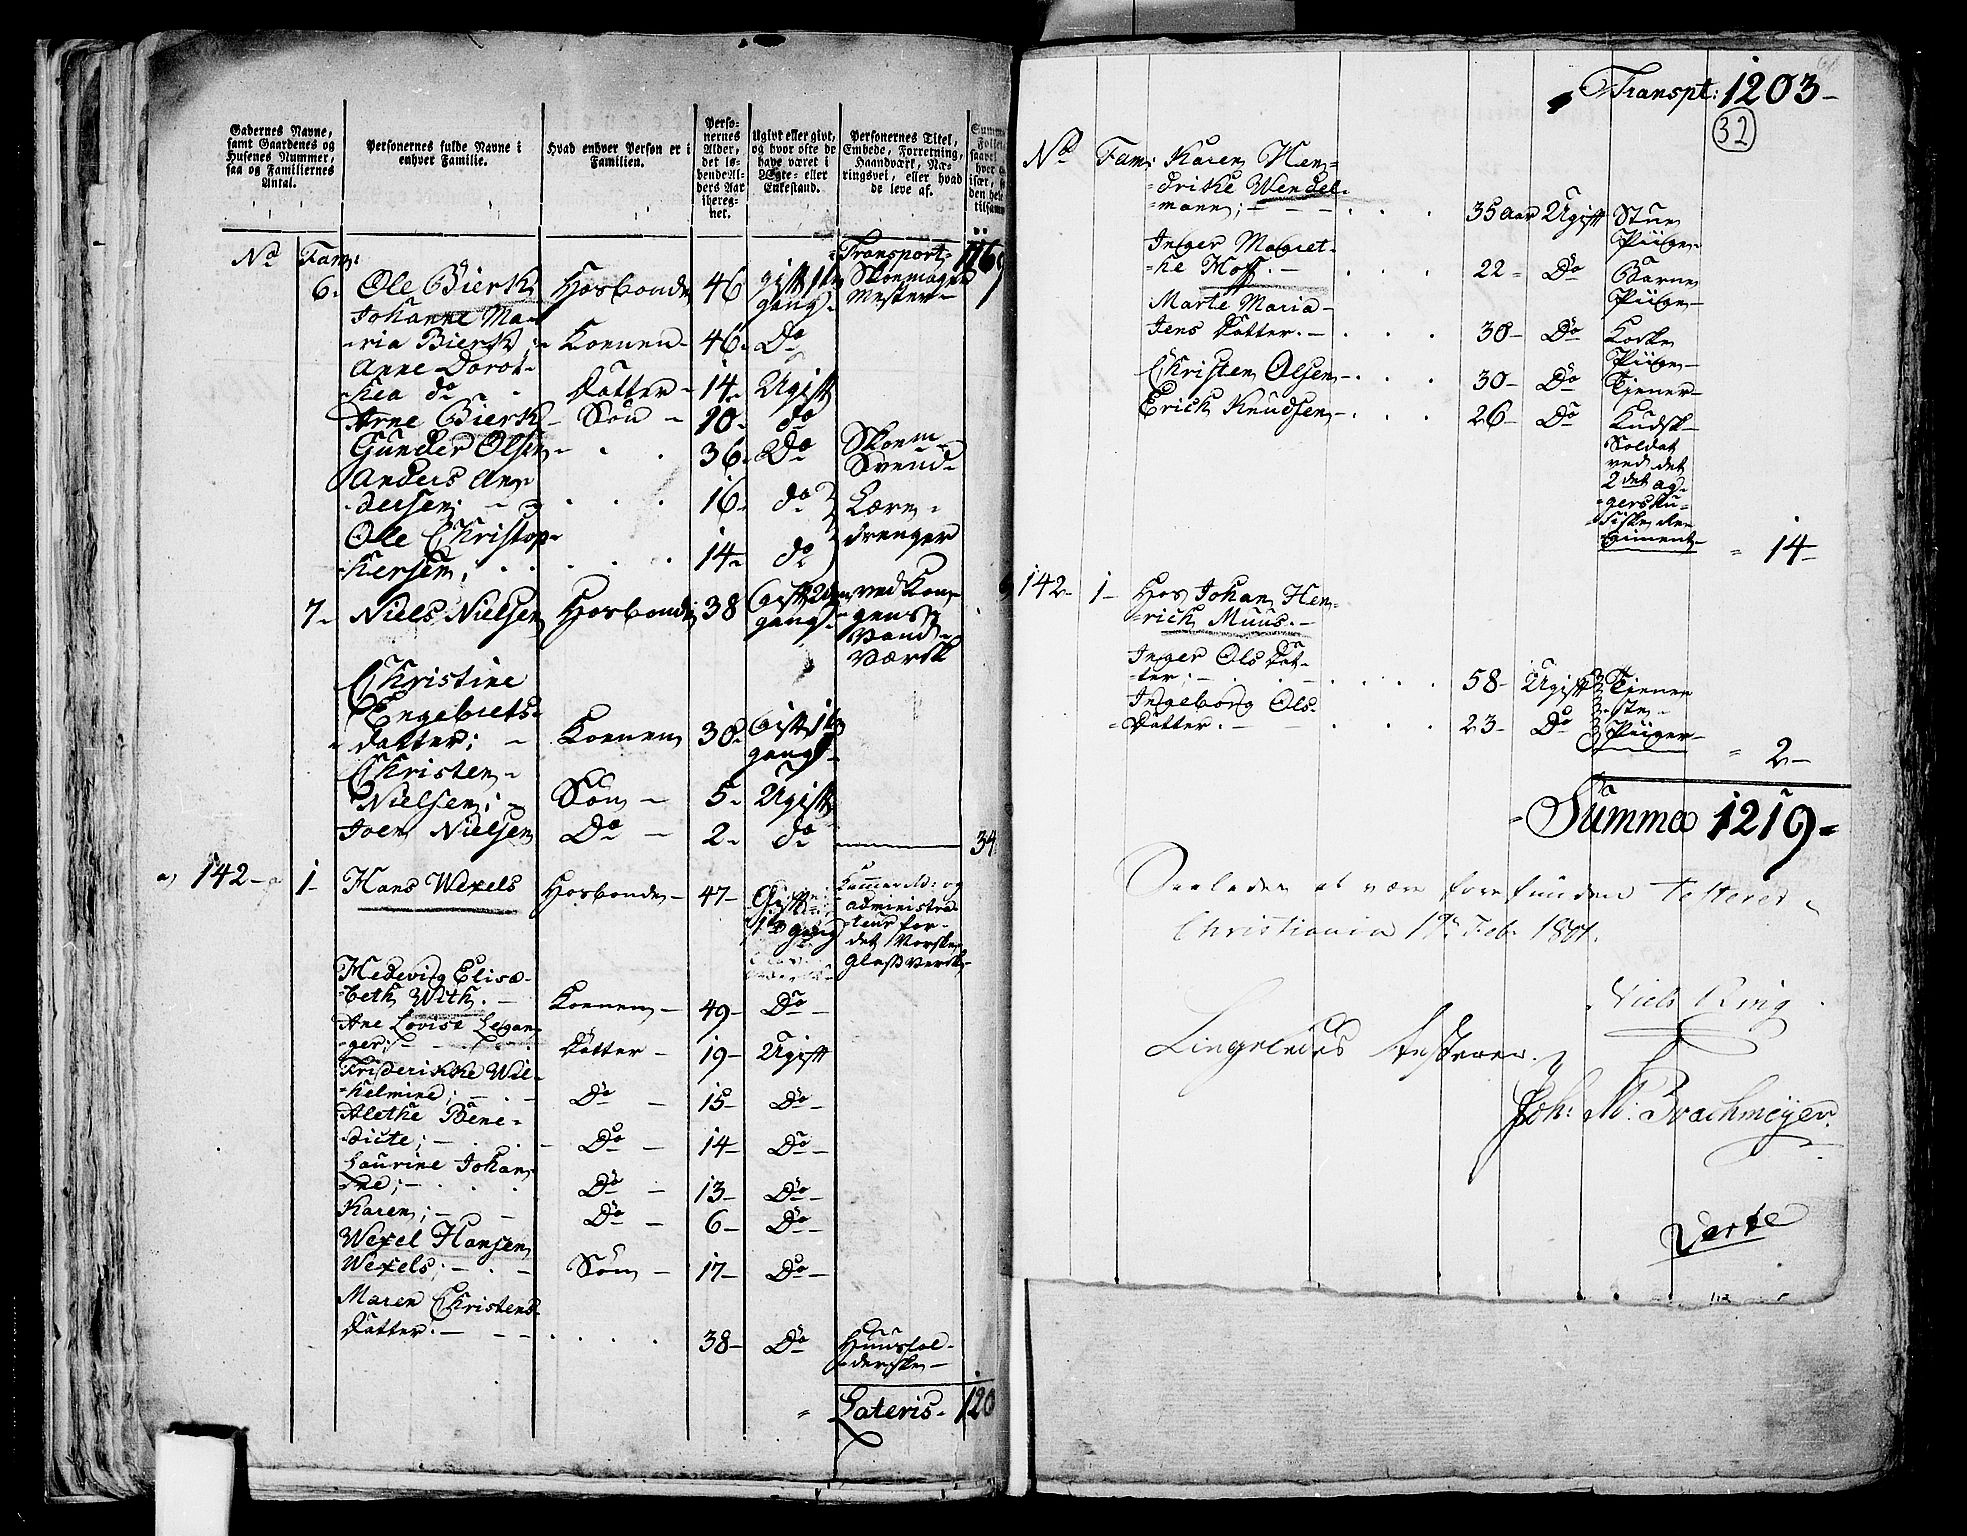 Gadernes Navne,
samt Gaardenes og
Husenes Nummer,
saa og Familiernes
Antal.
Personernes fulde Navne i
enhver Familie.
Hvad enhver Person er i
Familien.
Perso-
nernes
Alder,
det lø-
bende Al-
ders Aar
ibereg-
net.
Ugivt eller givt,
og hvor ofte de
have været i
Ægte- eller
Enkestand.
Personernes Titel,
Embede, Forretning,
Haandværk, Næ-
ringsvei, eller hvad
de leve af.
No Fam: Transport 1169
6. Ole Bierk Hosbonde 46 gift 1te Skomager
gang. Mester
Johanne Ma-
ria Bierk; Konen 46. Do
Anne Dorot-
hea do Datter 14. Ugift
Arne Bierk Søn 10. do
Gunder Olsen 36. Do Skoem
Svend
Anders An-
dersen; 16. do Lære-
Ole Christop- drenger
hersen; 14. do
7. Niels Nielsen Hosbonde 38 Gift 2den ved Kon-
gang. gens
Vand
Værck
Christine
Engebrets-
datter; Konen 30. Gift 1te
gang
Christen
Nielsen; Søn 5. Ugift
Joen Nielsen Do 2. do 34
142 1 Hans Wexels Hosbonde 47 Gift Kammerad: og
1te gang administra-
teur for
det Norske
Glassværk
Hedevig Elisa-
beth With. Konen 49 Do
Ane Lovise Legan-
ger; Datter 19 Ugift
Friderikke Wil-
helmine; Do 15 Do
Alethe Bene-
dicte; Do 14 Do
Laurine Johan-
ne; Do 13 Do
Karen; Do 6 Do
Wexel Hansen
Wexels; Søn 17 Do
Maren Christens
Datter. 38 Do Huushol-
derske
Lateris 120
Transpt: 1203
32
No Fam: Karen Hen-
drikke Wendel-
mann; 35 aar Ugift Stue
Piige
Inger Magret-
he Hoff. 22 Do Barne
Piige
Marte Maria
Jens Datter. 30 Do Kokke
Piige
Christen Olsen 30 Do Tjener
Erich Knudsen 26 Do Kudsk
Soldat
ved det
2det ag-
gershu-
siske Re-
giment 14
142 1 Hos Johan Hen-
rich Muus.
Inger Ols Dat-
ter; 58 Ugift Tjene-
Ingeborg Ols ste
Datter. 23 Do Piiger
2
Summa 1219
Saaledes at være forefunden testeres
Christiania 1te Feb. 1801.
Niels Ring
Ligeledes testerer
Joh: M: Brachmeyer
Verte